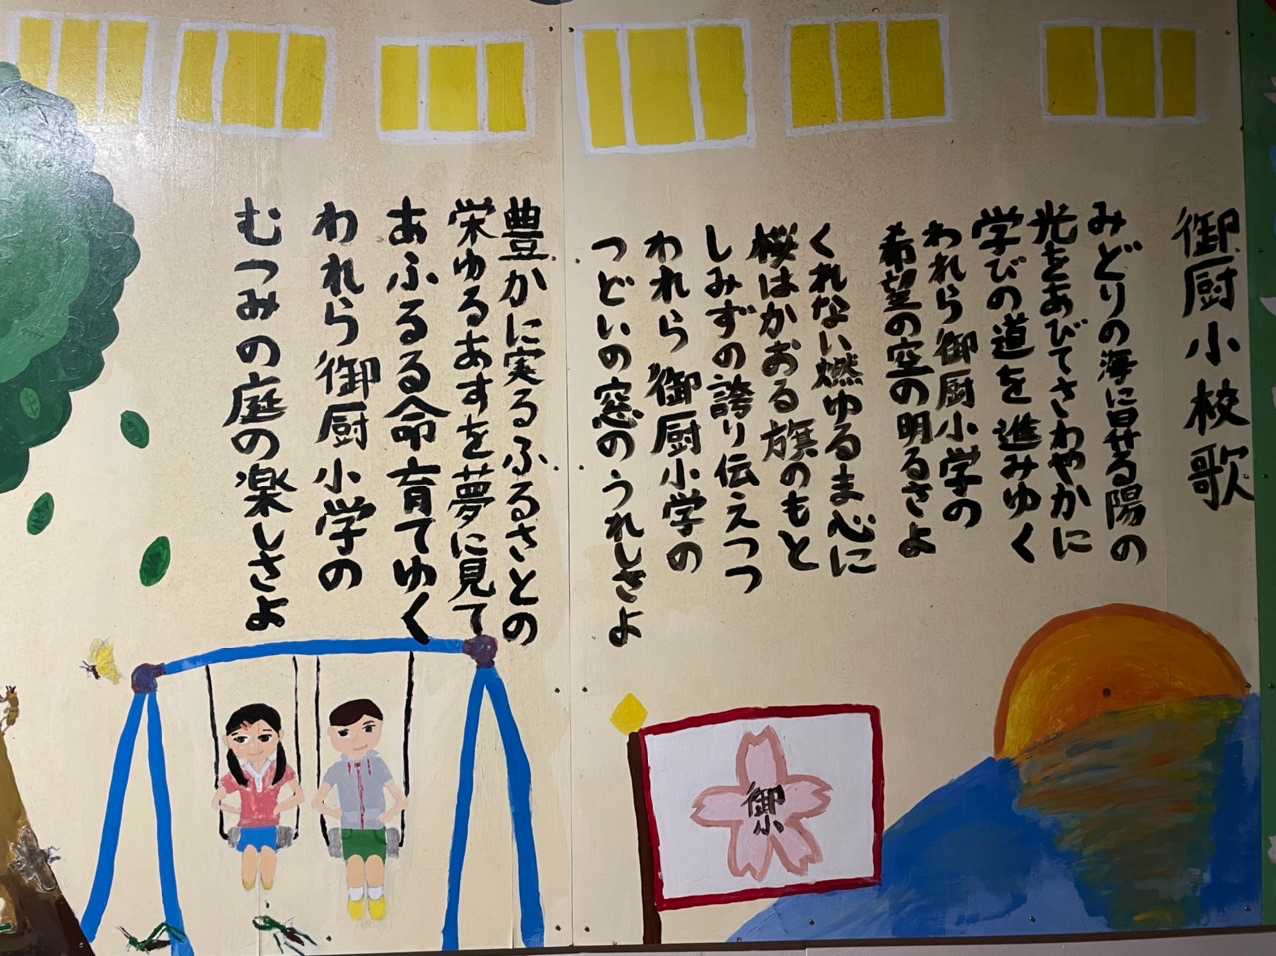 御厨小校歌
みどりの海に昇る陽の
光をあびてさわやかに
学びの道を進みゆく
われら御厨小学の
希望の空の明るさよ
くれない燃ゆるま心に
桜はかおる旗のもと
しみずの誇り伝えつつ
われら御厨小学の
つどいの窓のうれしさよ
豊かに実るふるさとの
栄ゆるあすを夢に見て
あふるる命育てゆく
われら御厨小学の
むつみの庭の楽しさよ
御小